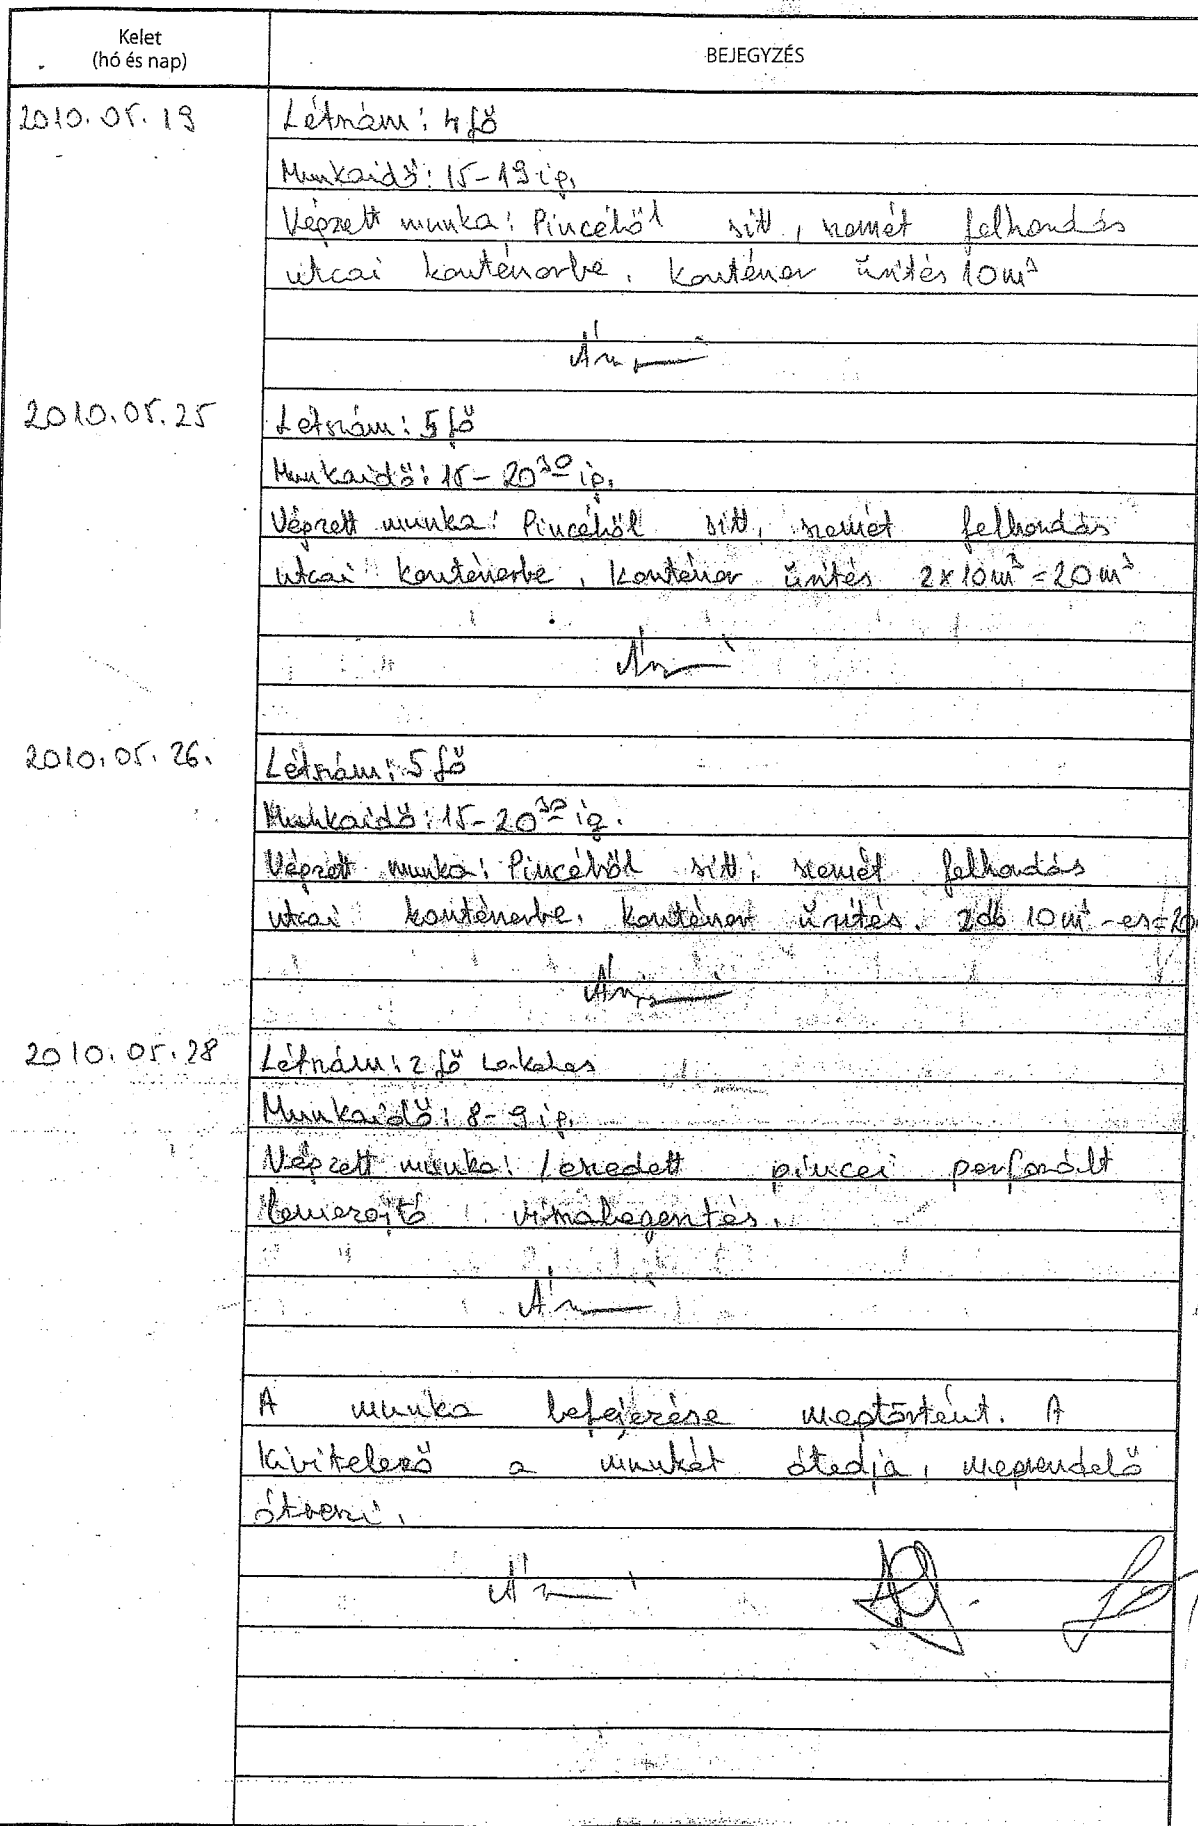 Kelet
(hó és nap)
BEJEGYZÉS
2010.05.19
Létszám: 4 fő
Munkaidő: 15-19 ig.
Végzett munka: Pincéből sitt, szemét felhordás
utcai konténerbe. Konténer ürítés 10 m³
2010.05.25
Létszám: 5 fő
Munkaidő: 15-20³⁰ ig.
Végzett munka: Pincéből sitt, szemét felhordás
utcai konténerbe, konténer ürítés 2x10 m³ = 20 m³
2010.05.26.
Létszám: 5 fő
Munkaidő: 15-20³⁰ ig.
Végzett munka: Pincéből sitt, szemét felhordás
utcai konténerbe. konténer ürítés. 2 db 10 m³-es=20
2010.05.28
Létszám: 2 fő Lakatos
Munkaidő: 8-9 ig.
Végzett munka: leszedett pincei perforált
lemezajtó visszahegesztés.
A munka befejezése megtörtént. A
Kivitelező a munkát átadja, megrendelő
átveszi.